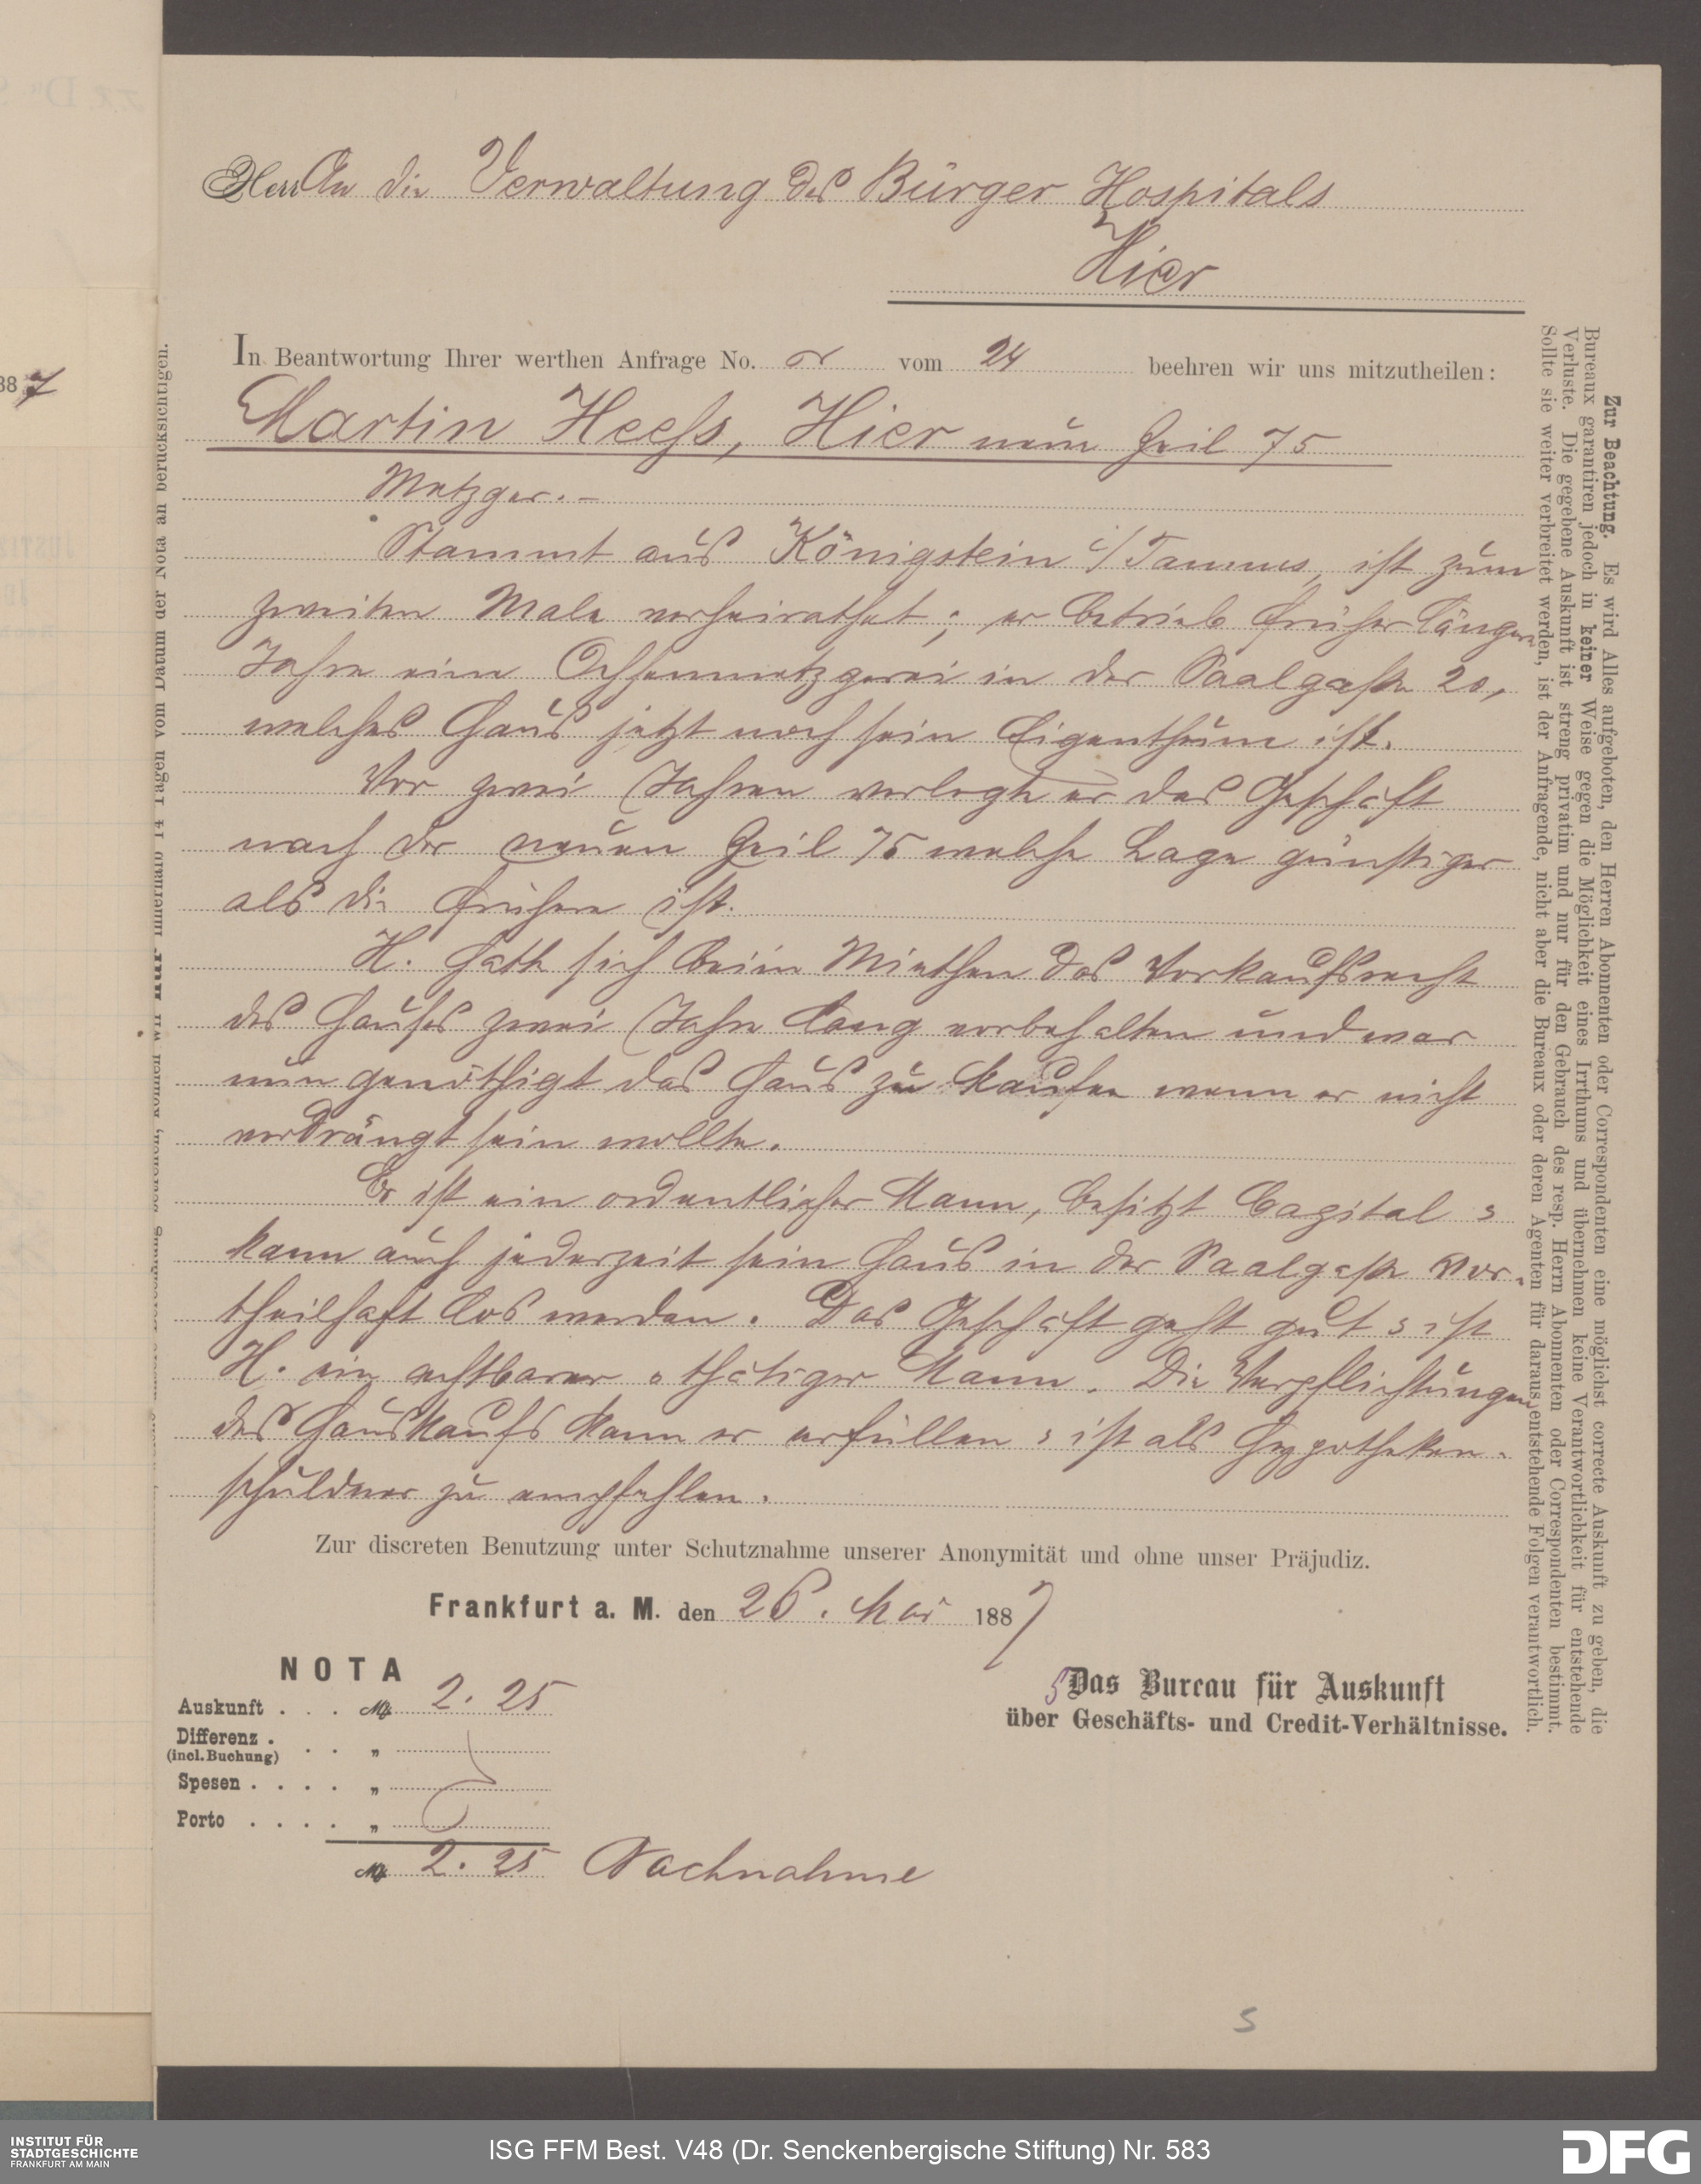 Herr An die Verwaltung des Bürger Hospitals
Hier
In Beantwortung Ihrer werthen Anfrage No. vom 24 beehren wir uns mitzutheilen:
Martin Heeß, Hier neue Zeil 75
Metzger. –
Stammt aus Königstein i/Taunus, ist zum
zweiten Male verheirathet; er betrieb früher längere
Jahre eine Ochsenmetzgerei in der Saalgasse 20,
welches Haus jetzt noch sein Eigenthum ist.
Vor zwei Jahren verlegte er das Geschäft
nach der neuen Zeil 75 welche Lage günstiger
als die frühere ist.
H. hatte sich beim Miethen das Vorkaufsrecht
des Hauses zwei Jahre lang vorbehalten und war
nun genöthigt das Haus zu kaufen wenn er nicht
verdrängt sein wollte.
Er ist ein ordentlicher Mann, besitzt Capital &
kann auch jederzeit sein Haus in der Saalgasse vor-
theilhaft los werden. Das Geschäft geht gut & ist
H. ein achtbarer & thätiger Mann. Die Verpflichtungen
des Hauskaufs kann er erfüllen & ist als Hypotheken-
schuldner zu empfehlen.
Zur discreten Benutzung unter Schutznahme unserer Anonymität und ohne unser Präjudiz.
Frankfurt a. M. den 26. Mai 1887
NOTA
Auskunft . . . M 2. 25
Differenz .
(incl. Buchung) . . „
Spesen . . . . „
Porto . . . . „
M 2. 25 Nachnahme
Das Bureau für Auskunft
über Geschäfts- und Credit-Verhältnisse.
Zur Beachtung. Es wird Alles aufgeboten, den Herren Abonnenten oder Correspondenten eine möglichst correcte Auskunft zu geben, die
Bureaux garantiren jedoch in keiner Weise gegen die Möglichkeit eines Irrthums und übernehmen keine Verantwortlichkeit für entstehende
Verluste. Die gegebene Auskunft ist streng privatim und nur für den Gebrauch des resp. Herrn Abonnenten oder Correspondenten bestimmt.
Sollte sie weiter verbreitet werden, ist der Anfragende, nicht aber die Bureaux oder deren Agenten für daraus entstehende Folgen verantwortlich.
innerhalb 14 Tagen vom Datum der Nota an berücksichtigen.
887
5
INSTITUT FÜR
STADTGESCHICHTE
FRANKFURT AM MAIN
ISG FFM Best. V48 (Dr. Senckenbergische Stiftung) Nr. 583
DFG